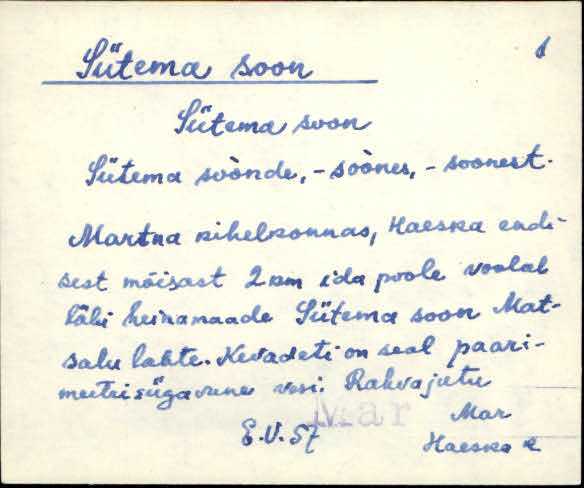 Sütema soon
Sütema soon
Sütema soònde, - soònes, - soonest.
Martna kihelkonnas, Haeska endi-
sest mõisast 2 km ida poole voolab
läbi heinamaade Sütema soon Mat-
salu lahte. Kevadeti on seal paari-
meetri sügavune vesi. Rahvajutu
Mar
Mar
E.V. 57
Haeska k